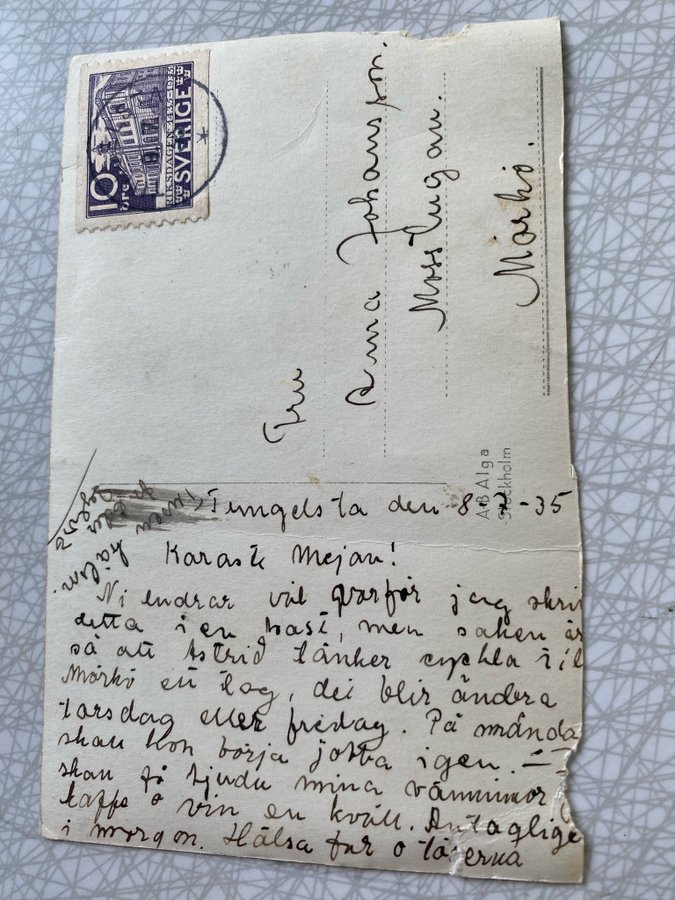 10
ÖRE
RIKSDAGEN
SVERIGE
Fru
Anna Johansson.
Mosstugan.
Mörkö.
A·B Alga
Stockholm
Tungelsta den 8 -35
Käraste Mejan!
Ni undrar väl varför jag skri
detta i en hast, men saken är
så att Astrid tänker cykla till
Mörkö ett tag, det blir ändera
torsdag eller fredag. På månda
skall hon börja jobba igen. —
skall få bjuda mina väninnor
kaffe o vin en kväll. Antaglige
i morgon. Hälsa far o töserna